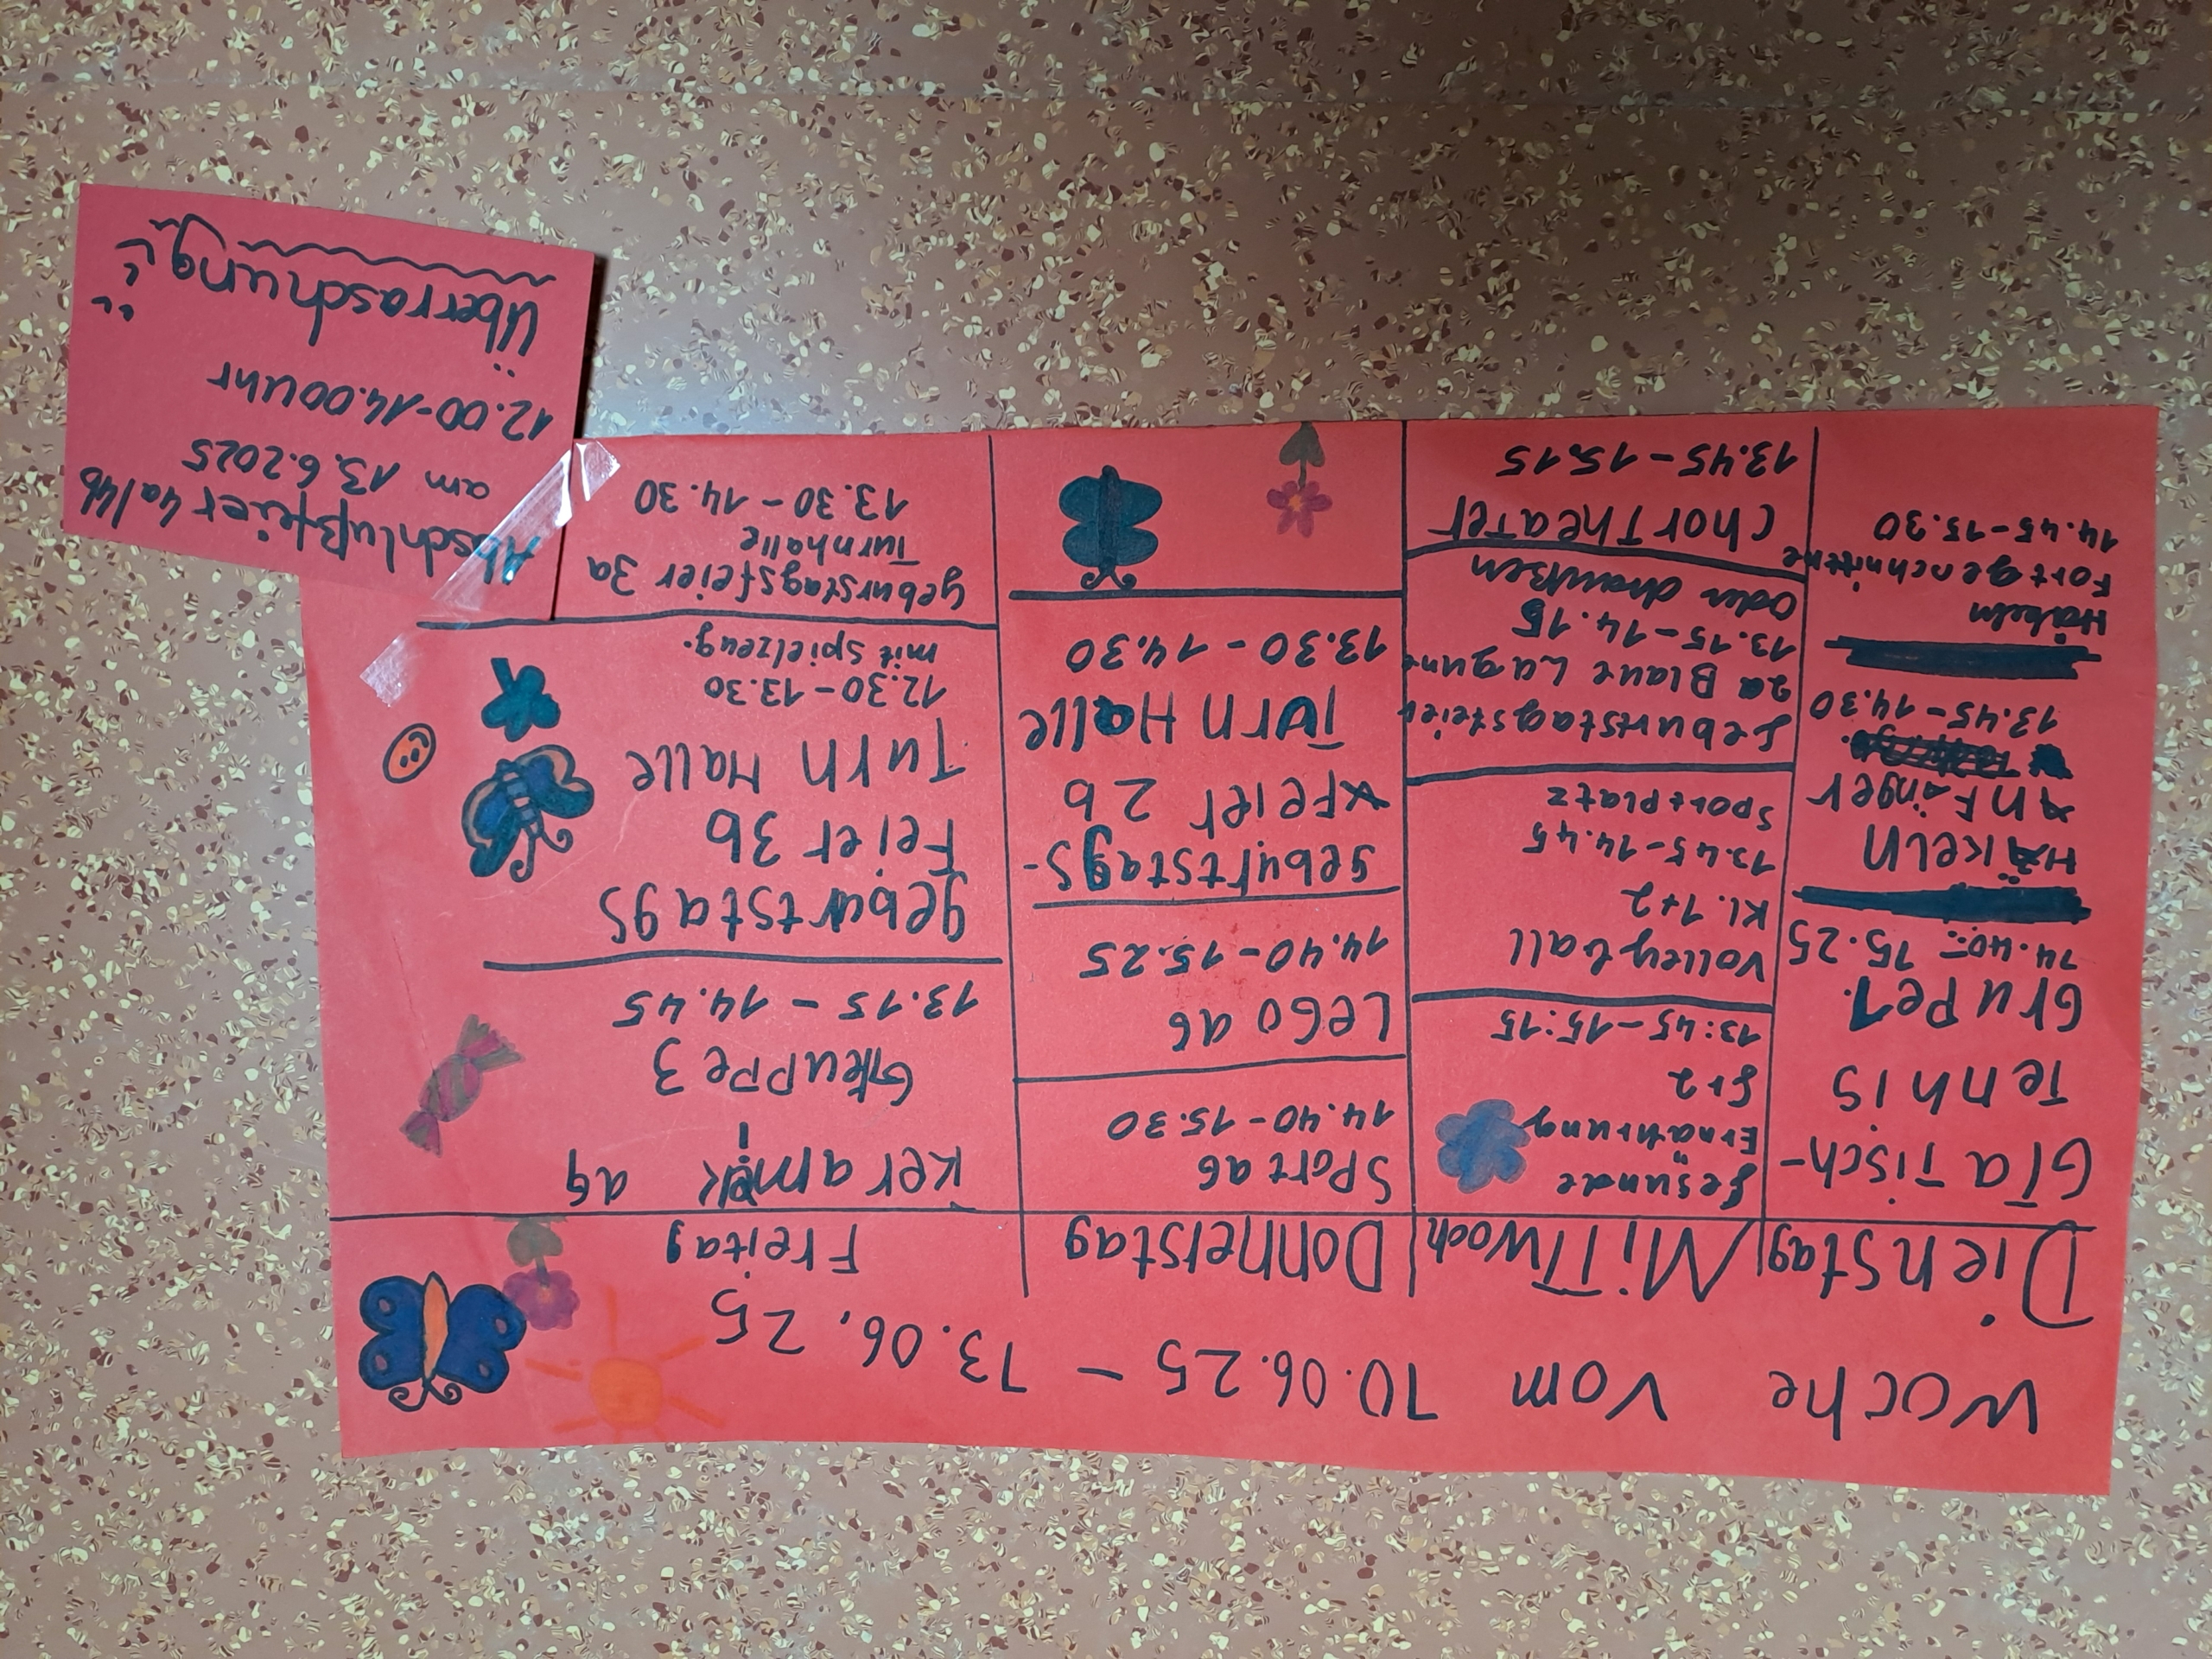 Woche vom 10.06.25 - 13.06.25
Dienstag
GTA Tisch-
Tennis
Grupe 1.
14.40 - 15.25
HÄKELN
AnFänger
13.45 - 14.30
Häkeln
Fortgenchnittne
14.45 - 15.30
MiTTwoch
Gesunde
Ernährung
1+2
13:45 - 15:15
Volleyball
Kl. 1+2
13.45 - 14.45
Sportplatz
Geburtstagsfeier
2a Blaue Lagune
13.15 - 14.15
Oder draußen
Chor Theater
13.45 - 15.15
Donnerstag
Sport aG
14.40 - 15.30
LeGo aG
14.40 - 15.25
geburtstags-
Feier 2b
Turn Halle
13.30 - 14.30
Freitag
Keramik ag
Gruppe 3
13.15 - 14.45
geburtstags
Feier 3b
Turn Halle
12.30 - 13.30
mit Spielzeug.
geburstagsfeier 3a
Turnhalle
13.30 - 14.30
Abschlußfeier 4a/4b
am 13.6.2025
12.00-14.00 Uhr
Überraschung